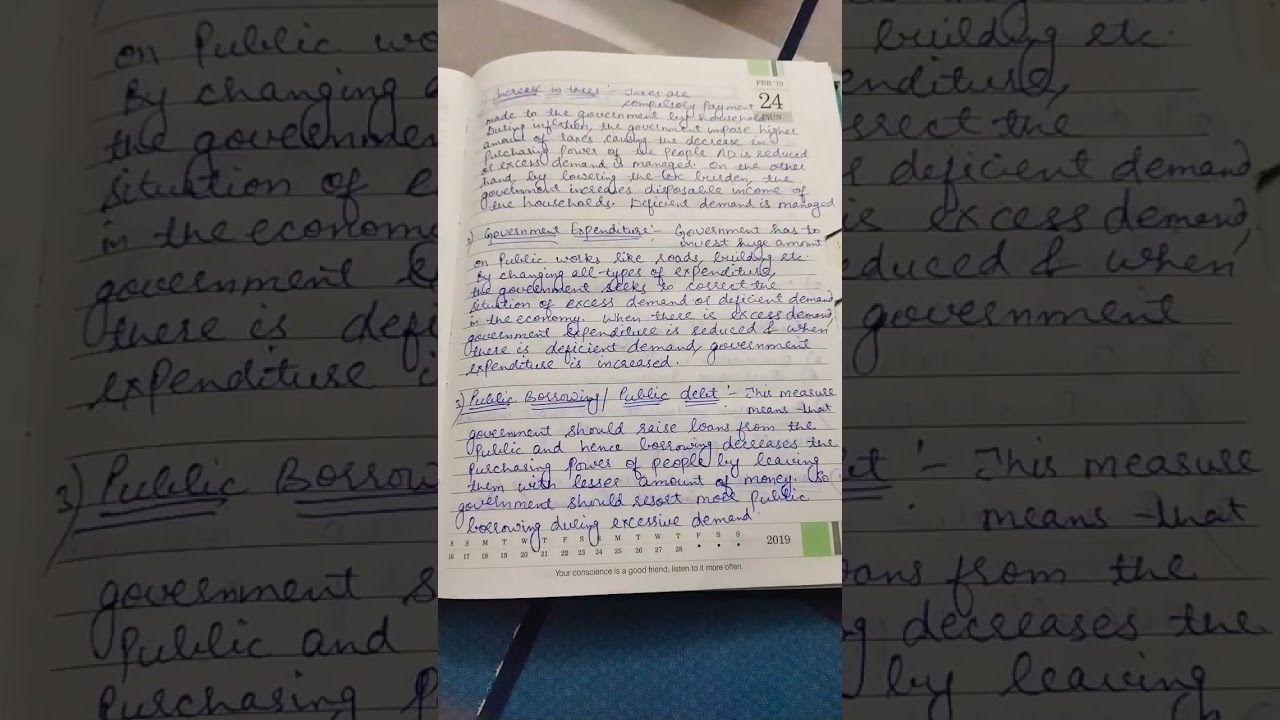 FEB '19
24
SUN
Increase in taxes :- Taxes are
compulsory payment
made to the government by households
During inflation, the government impose higher
amount of taxes causing the decrease in
Purchasing Power of the people AD is reduced
& excess demand is managed. On the other
hand, by lowering the tax burden, the
government increases disposable income of
the households. Deficient demand is managed
2) Government Expenditure :- Government has to
invest huge amount
on Public works like roads, building etc.
By changing all types of expenditure,
the government seeks to correct the
situation of excess demand or deficient demand
in the economy. When there is excess demand,
government Expenditure is reduced & when
there is deficient demand, government
expenditure is increased.
3) Public Borrowing / Public debt :- This measure
means that
government should raise loans from the
Public and hence borrowing decreases the
Purchasing Power of people by leaving
them with lesser amount of money. So
government should resort more Public
borrowing during excessive demand.
S S M T W T F S S M T W T F S S
16 17 18 19 20 21 22 23 24 25 26 27 28 • • •
2019
Your conscience is a good friend, listen to it more often.